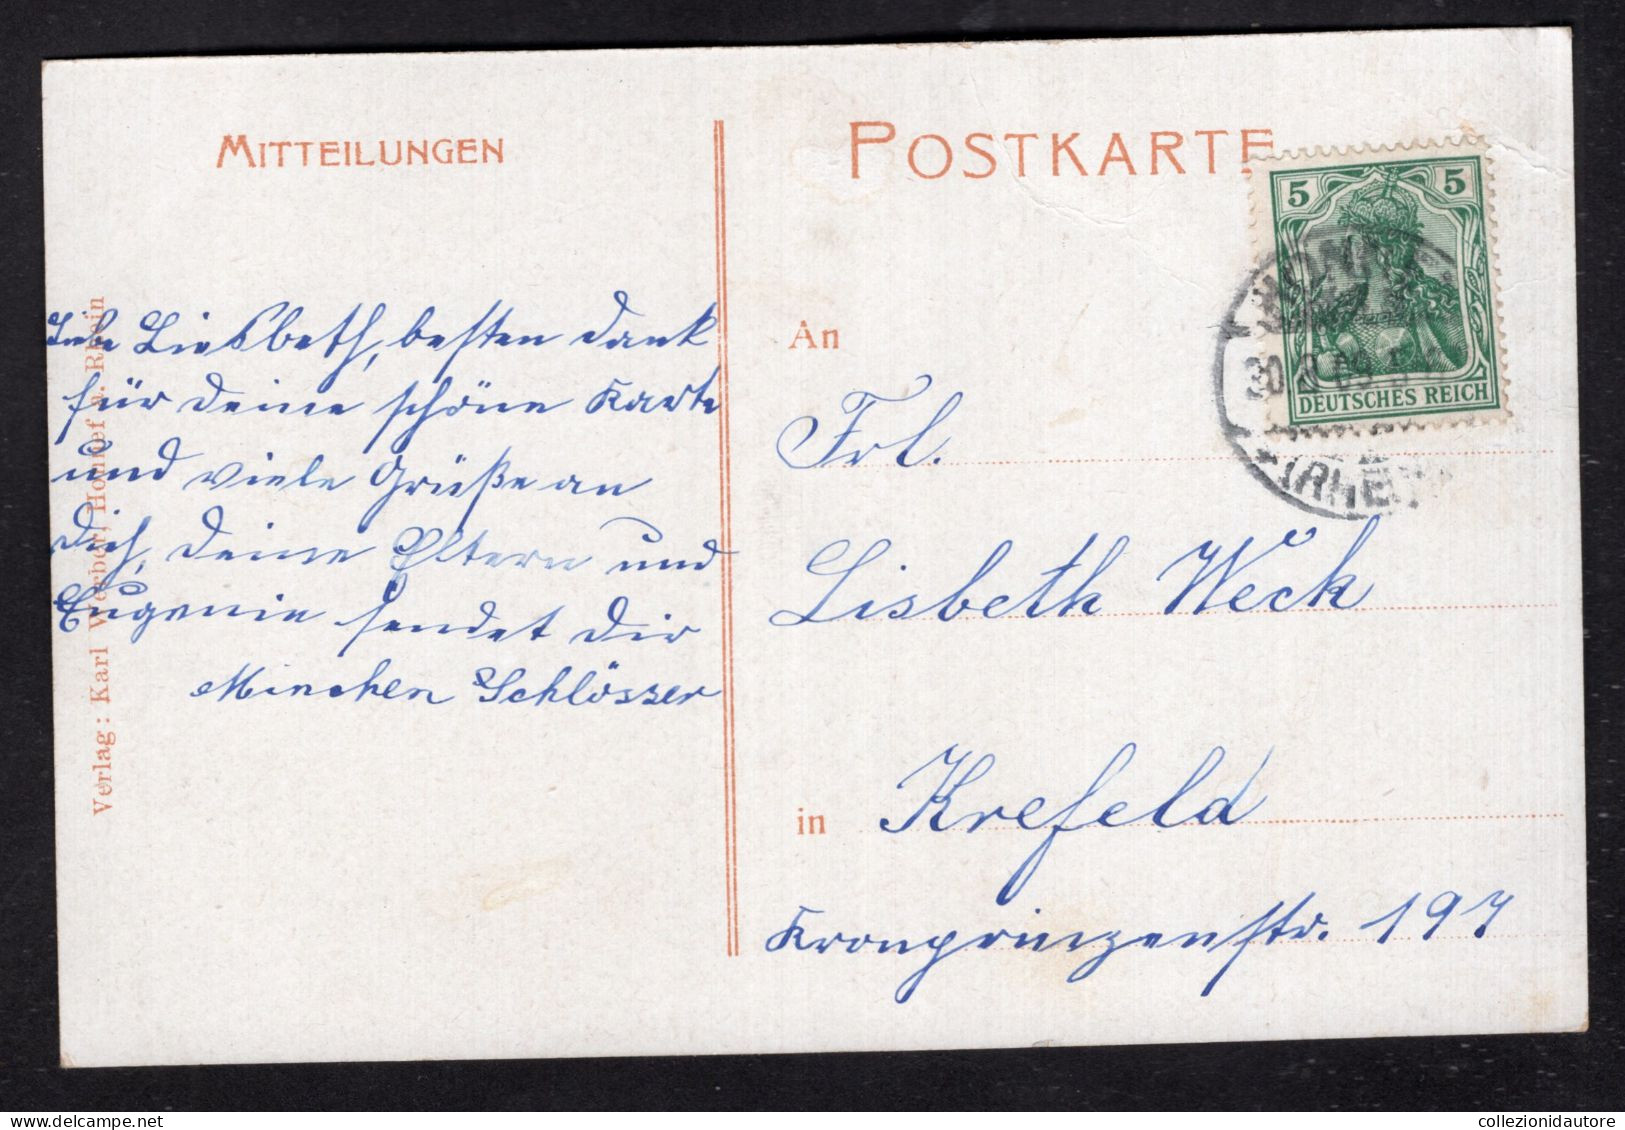 MITTEILUNGEN
Liebe Liesbeth, besten Dank
für deine schöne Karte
und viele Grüße an
Dich, deine Eltern und
Eugenie sendet Dir
Minchen Schlösser
Verlag: Karl Werber, Honnef a. Rhein
POSTKARTE
5 5
DEUTSCHES REICH
HONNEF
30 8 09
(RHEIN)
An
Frl.
Lisbeth Weck
in Krefeld
Kronprinzenstr. 197
collezionidautore